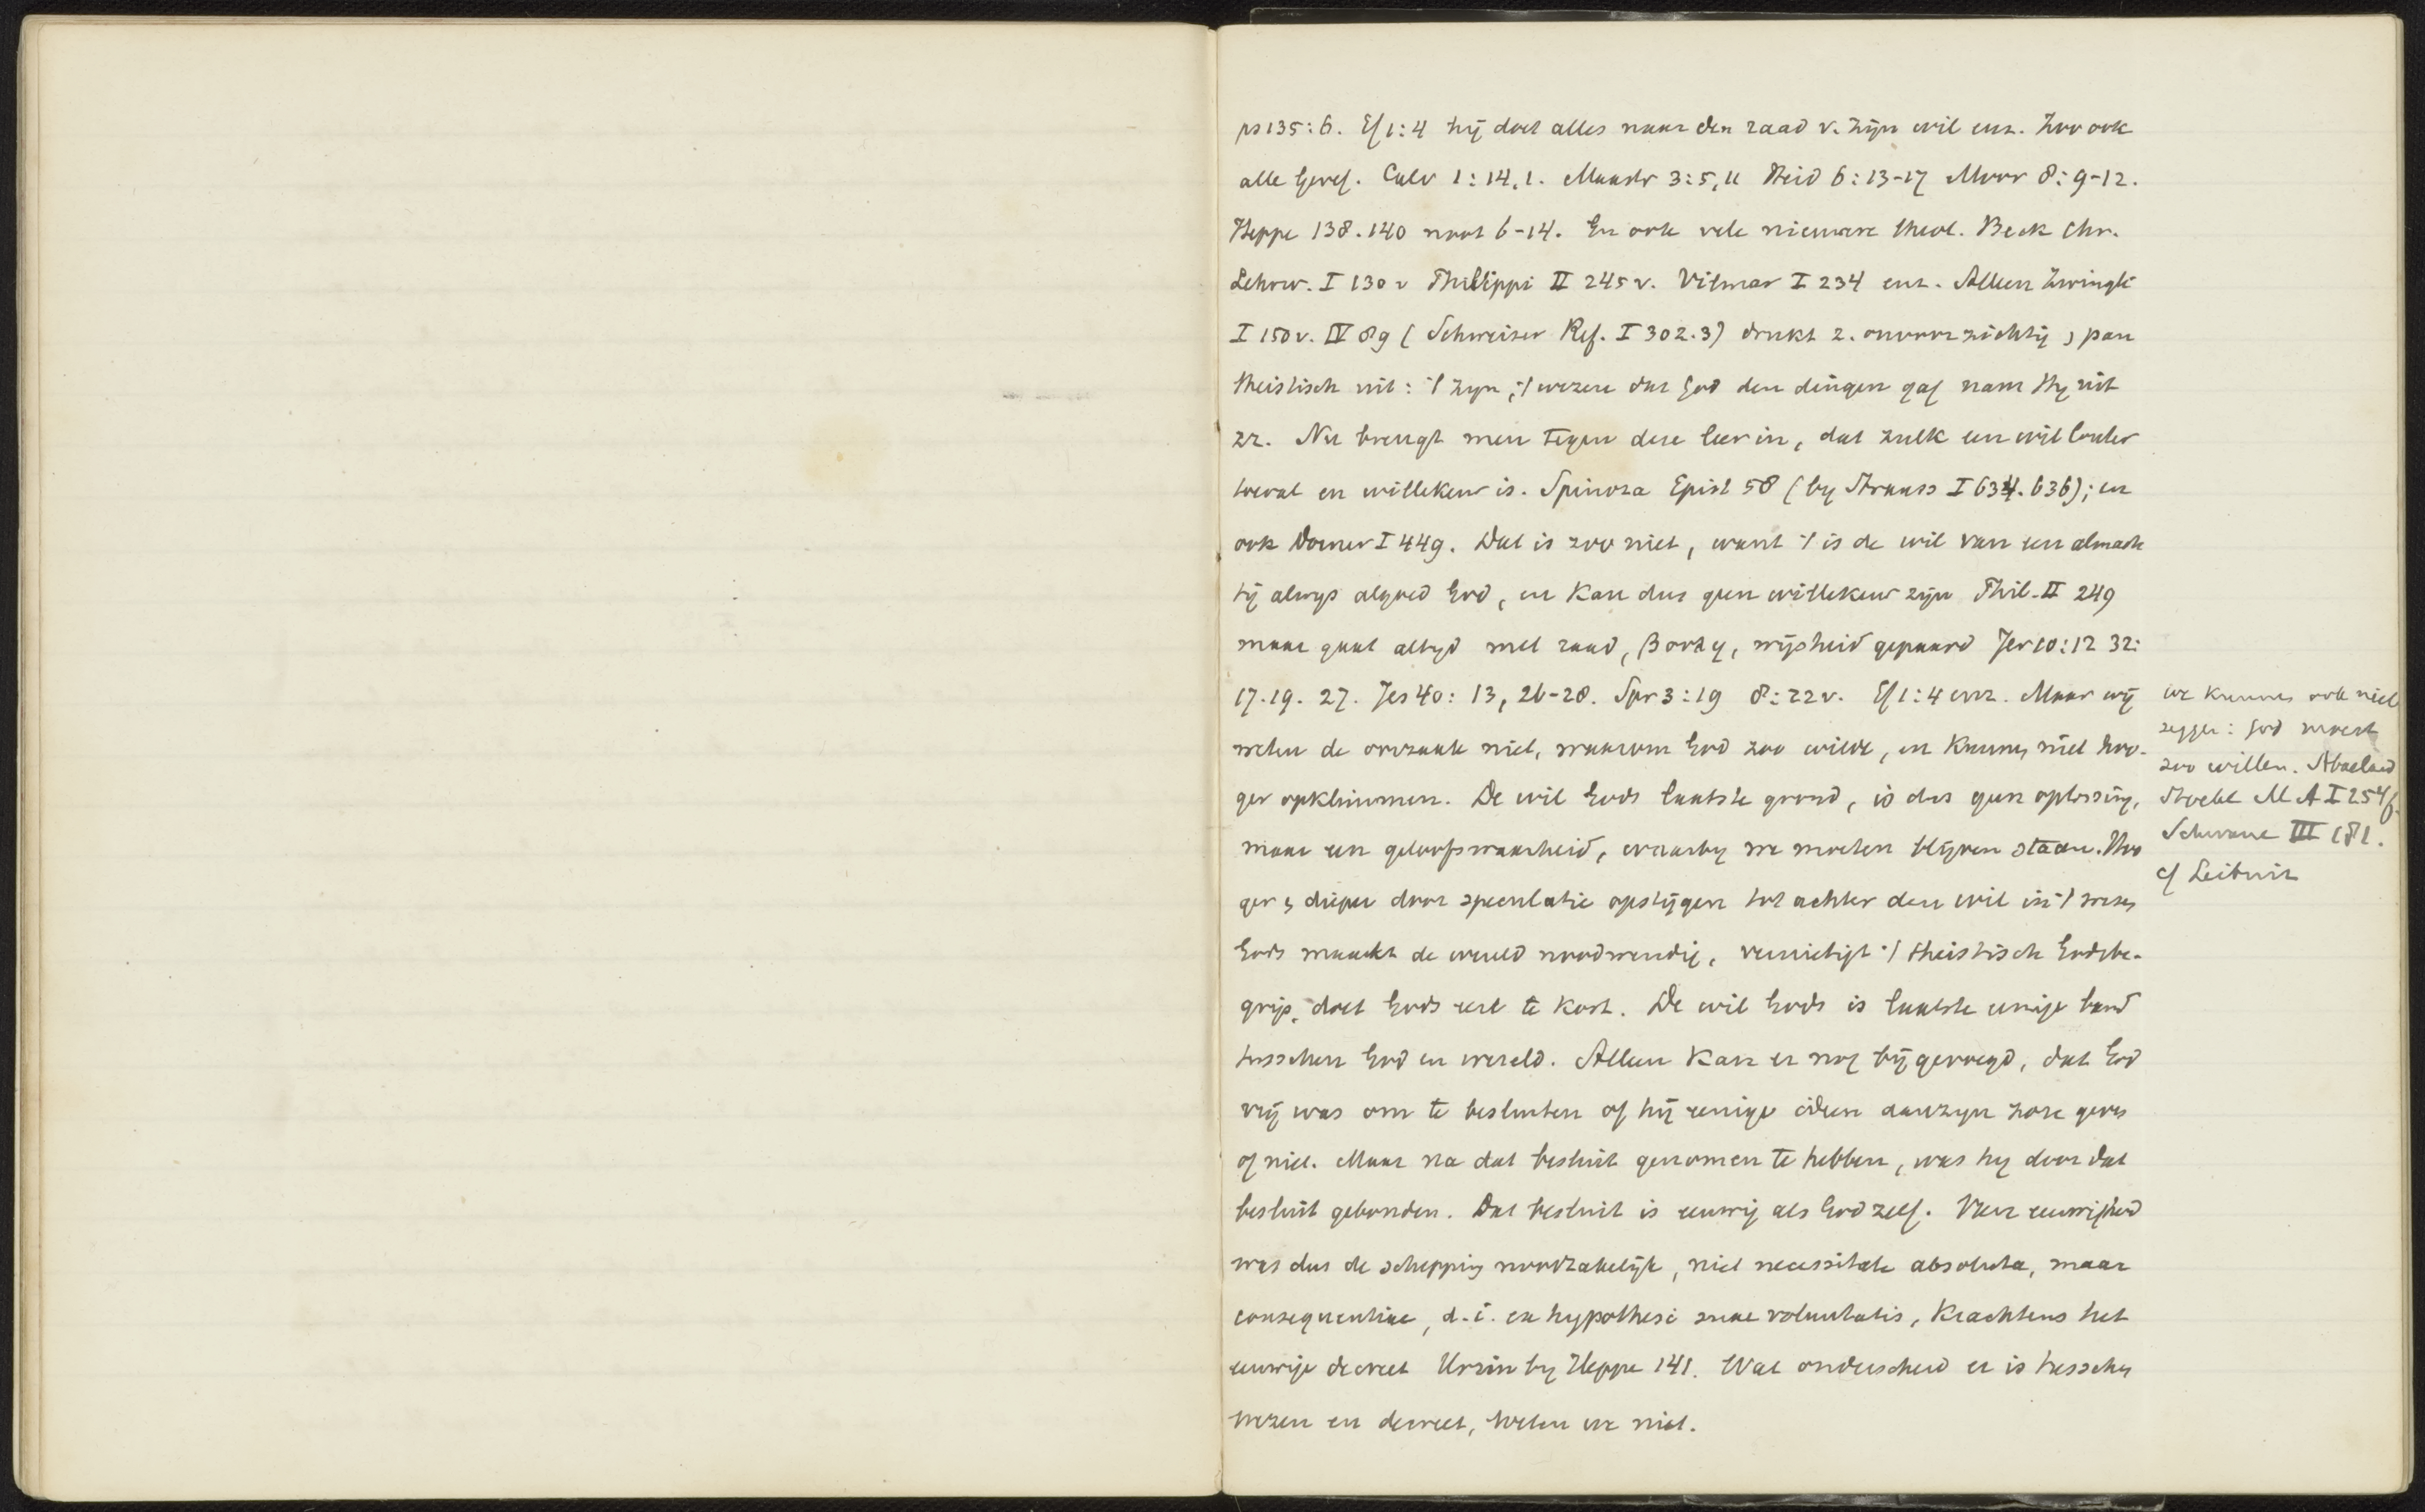 ps 135:6. Ef 1:4 hij doet alles naar den raad v. zijn wil enz. Zoo ook
alle Geref. Calv 1:14,1. Maastr 3:5,11 Heid 6:13-17 Moor 8:9-12.
Heppe 138.140 noot 6-14. En ook vele nieuwere theol. Beck Chr.
Lehrw. I 130 v Philippi II 245 v. Vilmar I 234 enz. Alleen Zwingli
I 150 v. IV 89 (Schweizer Ref. I 302.3) drukt z. onvoorzichtig, pan
theistisch uit: 't zijn, 't wezen dat God den dingen gaf nam Hij uit
zz. Nu brengt men tegen deze leer in, dat zulk een wil louter
toeval en willekeur is. Spinoza Epist 58 (by Strauss I 634.636); en
ook Dorner I 449. Dat is zoo niet, want 't is de wil van een almach
tig alwys algoed God, en kan dus geen willekeur zijn Phil. II 249
maar gaat altyd met raad, wijsheid gepaard Jer 10:12 32:
17.19. 27. Jes 40:13, 26-28. Spr 3:19 8:22 v. Ef 1:4 enz. Maar wij
weten de oorzaak niet, waarom God zoo wilde, en kunnen niet hoo-
ger opklimmen. De wil Gods laatste grond, is dus geen oplossing,
maar een geloofswaarheid, waarby we moeten blijven staan. Hoo
ger, dieper door speculatie opstijgen tot achter den wil in 't wezen
Gods maakt de wereld noodwendig, vernietigt 't theistisch Godsbe-
grip, doet Gods eer te kort. De wil Gods is laatste eenige band
tusschen God en wereld. Alleen kan er nog bijgevoegd, dat God
vrij was om te besluten of hij eenige ideen aanzyn zou geven
of niet. Maar na dat besluit genomen te hebben, was hij door dat
besluit gebonden. Dat besluit is eeuwig als God zelf. Van eeuwigheid
was dus de schepping noodzakelijk, niet necessitate absoluta, maar
consequentiae, d.i. ex hypothesi suae voluntatis, krachtens het
eeuwige decreet Ursin by Heppe 141. Wat onderscheid er is tusschen
wezen en decreet, weten we niet.
we kunnen ook niet
zeggen: God moest
zoo willen. Abaelard
Stoeckl M A I 254 f.
Schwane III 181.
cf Leibniz